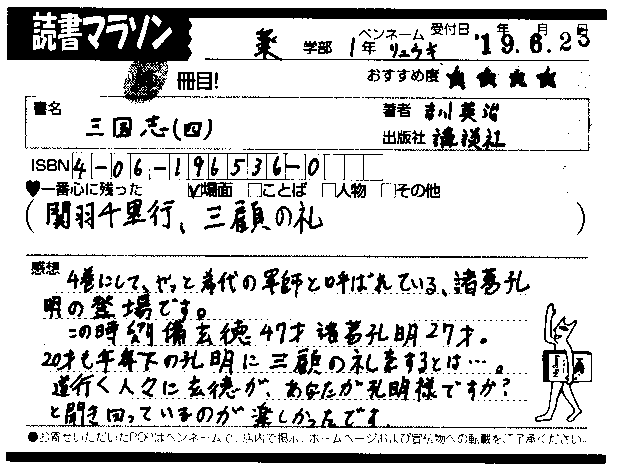 読書マラソン
薬 学部 1年 ペンネーム リュウキ 受付日 '19年6月25日
冊目! おすすめ度 ★★★★
書名 三国志(四)
著者 吉川英治
出版社 講談社
ISBN 4-06-196536-0
♥一番心に残った ☑場面 □ことば □人物 □その他
(関羽千里行、三顧の礼)
感想 4巻にして、やっと希代の軍師と呼ばれている、諸葛孔
明の登場です。
この時劉備玄徳47才 諸葛孔明27才。
20才も年年下の孔明に三顧の礼をするとは…。
道行く人々に玄徳が、あなたが孔明様ですか?
と聞き回っているのが楽しかったです。
●お寄せいただいたPOPはペンネームで、店内で掲示、ホームページおよび宣伝物への転載をご了承ください。